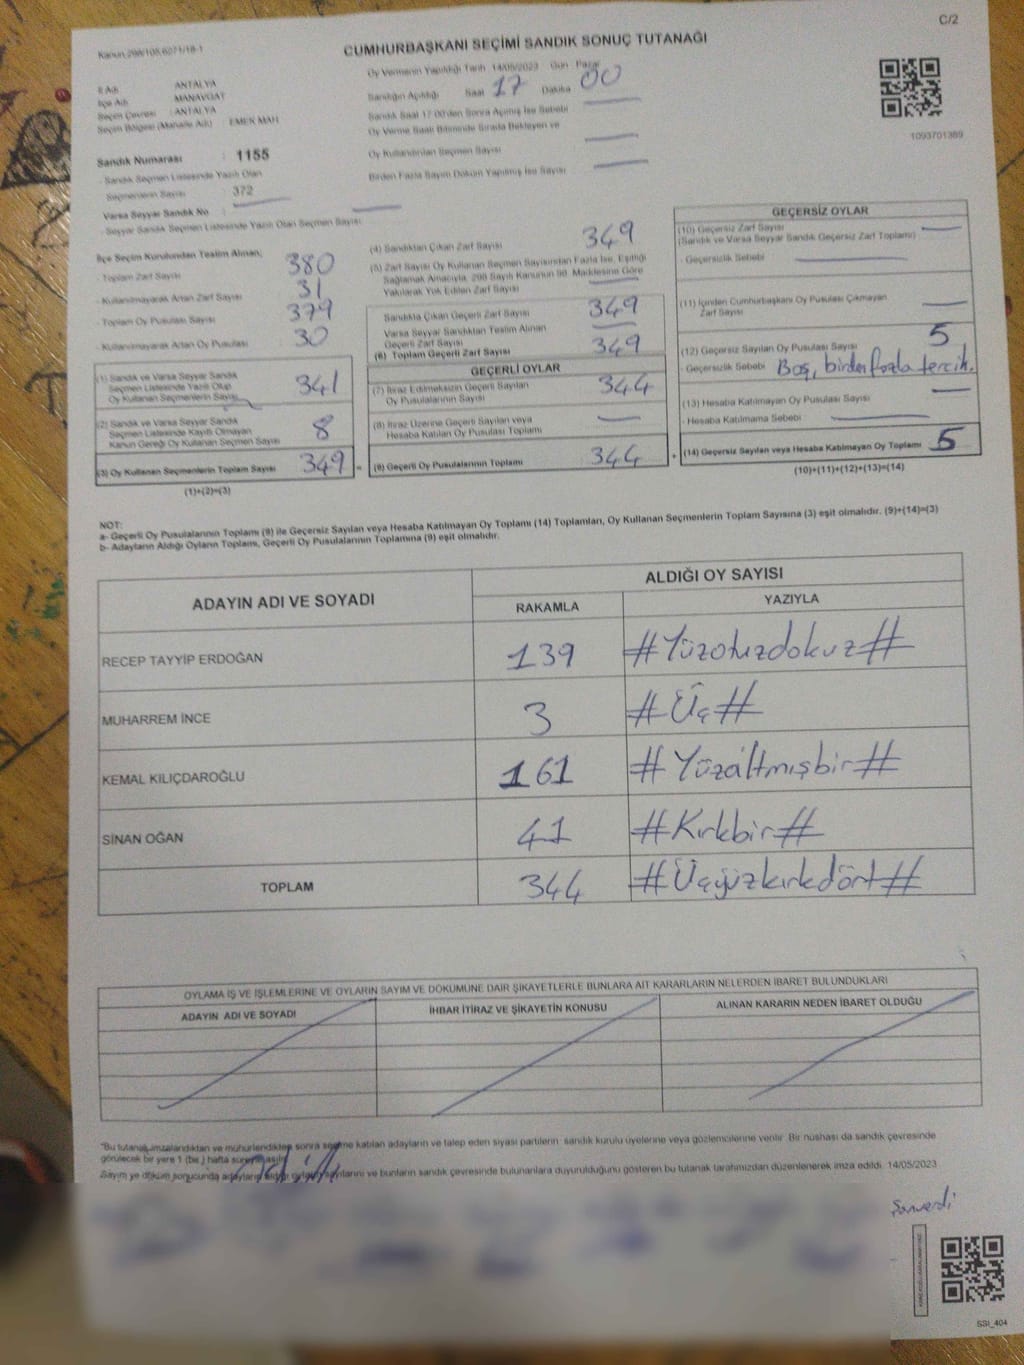 C/2
Kanun 298/105,6271/18-1
CUMHURBAŞKANI SEÇİMİ SANDIK SONUÇ TUTANAĞI
İl Adı : ANTALYA
İlçe Adı : MANAVGAT
Seçim Çevresi : ANTALYA
Seçim Bölgesi (Mahalle Adı) : EMEK MAH
Sandık Numarası : 1155
- Sandık Seçmen Listesinde Yazılı Olan
Seçmenlerin Sayısı : 372
Varsa Seyyar Sandık No :
- Seyyar Sandık Seçmen Listesinde Yazılı Olan Seçmen Sayısı
Oy Vermenin Yapıldığı Tarih 14/05/2023 Gün Pazar
Sandığın Açıldığı Saat 17 Dakika 00
Sandık Saat 17.00'den Sonra Açılmış İse Sebebi
Oy Verme Saati Bitiminde Sırada Bekleyen ve
Oy Kullandırılan Seçmen Sayısı
Birden Fazla Sayım Döküm Yapılmış İse Sayısı
1093701389
İlçe Seçim Kurulundan Teslim Alınan;
- Toplam Zarf Sayısı 380
- Kullanılmayarak Artan Zarf Sayısı 31
- Toplam Oy Pusulası Sayısı 379
- Kullanılmayarak Artan Oy Pusulası 30
(1) Sandık ve Varsa Seyyar Sandık
Seçmen Listesinde Yazılı Olup
Oy Kullanan Seçmenlerin Sayısı 341
(2) Sandık ve Varsa Seyyar Sandık
Seçmen Listesinde Kayıtlı Olmayan
Kanun Gereği Oy Kullanan Seçmen Sayısı 8
(3) Oy Kullanan Seçmenlerin Toplam Sayısı 349 =
(1)+(2)=(3)
(4) Sandıktan Çıkan Zarf Sayısı 349
(5) Zarf Sayısı Oy Kullanan Seçmen Sayısından Fazla İse, Eşitliği
Sağlamak Amacıyla, 298 Sayılı Kanunun 98. Maddesine Göre
Yakılarak Yok Edilen Zarf Sayısı
Sandıkta Çıkan Geçerli Zarf Sayısı 349
Varsa Seyyar Sandıktan Teslim Alınan
Geçerli Zarf Sayısı
(6) Toplam Geçerli Zarf Sayısı 349
GEÇERLİ OYLAR
(7) İtiraz Edilmeksizin Geçerli Sayılan
Oy Pusulalarının Sayısı 344
(8) İtiraz Üzerine Geçerli Sayılan veya
Hesaba Katılan Oy Pusulası Toplamı
(9) Geçerli Oy Pusulalarının Toplamı 344 +
GEÇERSİZ OYLAR
(10) Geçersiz Zarf Sayısı
(Sandık ve Varsa Seyyar Sandık Geçersiz Zarf Toplamı)
- Geçersizlik Sebebi
(11) İçinden Cumhurbaşkanı Oy Pusulası Çıkmayan
Zarf Sayısı
(12) Geçersiz Sayılan Oy Pusulası Sayısı 5
- Geçersizlik Sebebi Boş, birden fazla tercih.
(13) Hesaba Katılmayan Oy Pusulası Sayısı
- Hesaba Katılmama Sebebi
(14) Geçersiz Sayılan veya Hesaba Katılmayan Oy Toplamı 5
(10)+(11)+(12)+(13)=(14)
NOT:
a- Geçerli Oy Pusulalarının Toplamı (9) ile Geçersiz Sayılan veya Hesaba Katılmayan Oy Toplamı (14) Toplamları, Oy Kullanan Seçmenlerin Toplam Sayısına (3) eşit olmalıdır. (9)+(14)=(3)
b- Adayların Aldığı Oyların Toplamı, Geçerli Oy Pusulalarının Toplamına (9) eşit olmalıdır.
ADAYIN ADI VE SOYADI ALDIĞI OY SAYISI
RAKAMLA YAZIYLA
RECEP TAYYİP ERDOĞAN 139 #Yüzotuzdokuz#
MUHARREM İNCE 3 #Üç#
KEMAL KILIÇDAROĞLU 161 #Yüzaltmışbir#
SİNAN OĞAN 41 #Kırkbir#
TOPLAM 344 #Üçyüzkırkdört#
OYLAMA İŞ VE İŞLEMLERİNE VE OYLARIN SAYIM VE DÖKÜMÜNE DAİR ŞİKAYETLERLE BUNLARA AİT KARARLARIN NELERDEN İBARET BULUNDUKLARI
ADAYIN ADI VE SOYADI İHBAR İTİRAZ VE ŞİKAYETİN KONUSU ALINAN KARARIN NEDEN İBARET OLDUĞU
"Bu tutanak imzalandıktan ve mühürlendikten sonra seçime katılan adayların ve talep eden siyasi partilerin sandık kurulu üyelerine veya gözlemcilerine verilir. Bir nüshası da sandık çevresinde
görülecek bir yere 1 (bir) hafta süreyle asılır.
Sayım ve döküm sonucunda adayların aldığı oyların sayılarını ve bunların sandık çevresinde bulunanlara duyurulduğunu gösteren bu tutanak tarafımızdan düzenlenerek imza edildi. 14/05/2023
SSI_404